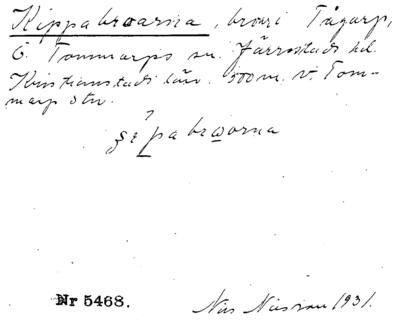 Kippabroarna, broar i Tågarp,
Ö. Tommarps sn. Järrestads hd.
Kristianstads län. 500 m. v. Tom-
marp stn.
Nr 5468.
Nils Nilsson 1931.